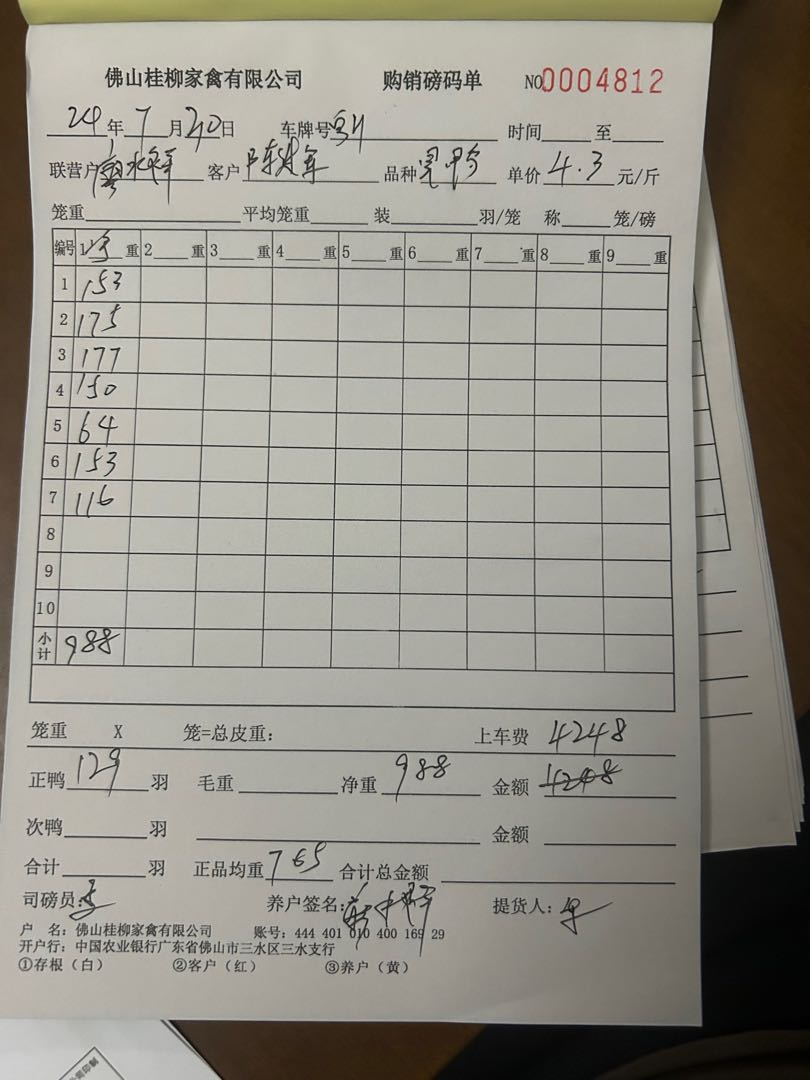 佛山桂柳家禽有限公司 购销磅码单 NO.0004812
24年7月20日 车牌号 时间 至
联营户 客户 品种 单价4.3元/斤
笼重 平均笼重 装 羽/笼 称 笼/磅
编号 1 重 2 重 3 重 4 重 5 重 6 重 7 重 8 重 9 重
1 153
2 175
3 177
4 150
5 64
6 153
7 116
8
9
10
小计 988
笼重 X 笼=总皮重: 上车费 4248
正鸭129羽 毛重 净重988 金额 4248
次鸭 羽 金额
合计 羽 正品均重 765 合计总金额
司磅员: 养户签名: 提货人:
户 名:佛山桂柳家禽有限公司 账号:444 401 010 400 169 29
开户行:中国农业银行广东省佛山市三水区三水支行
①存根(白) ②客户(红) ③养户(黄)